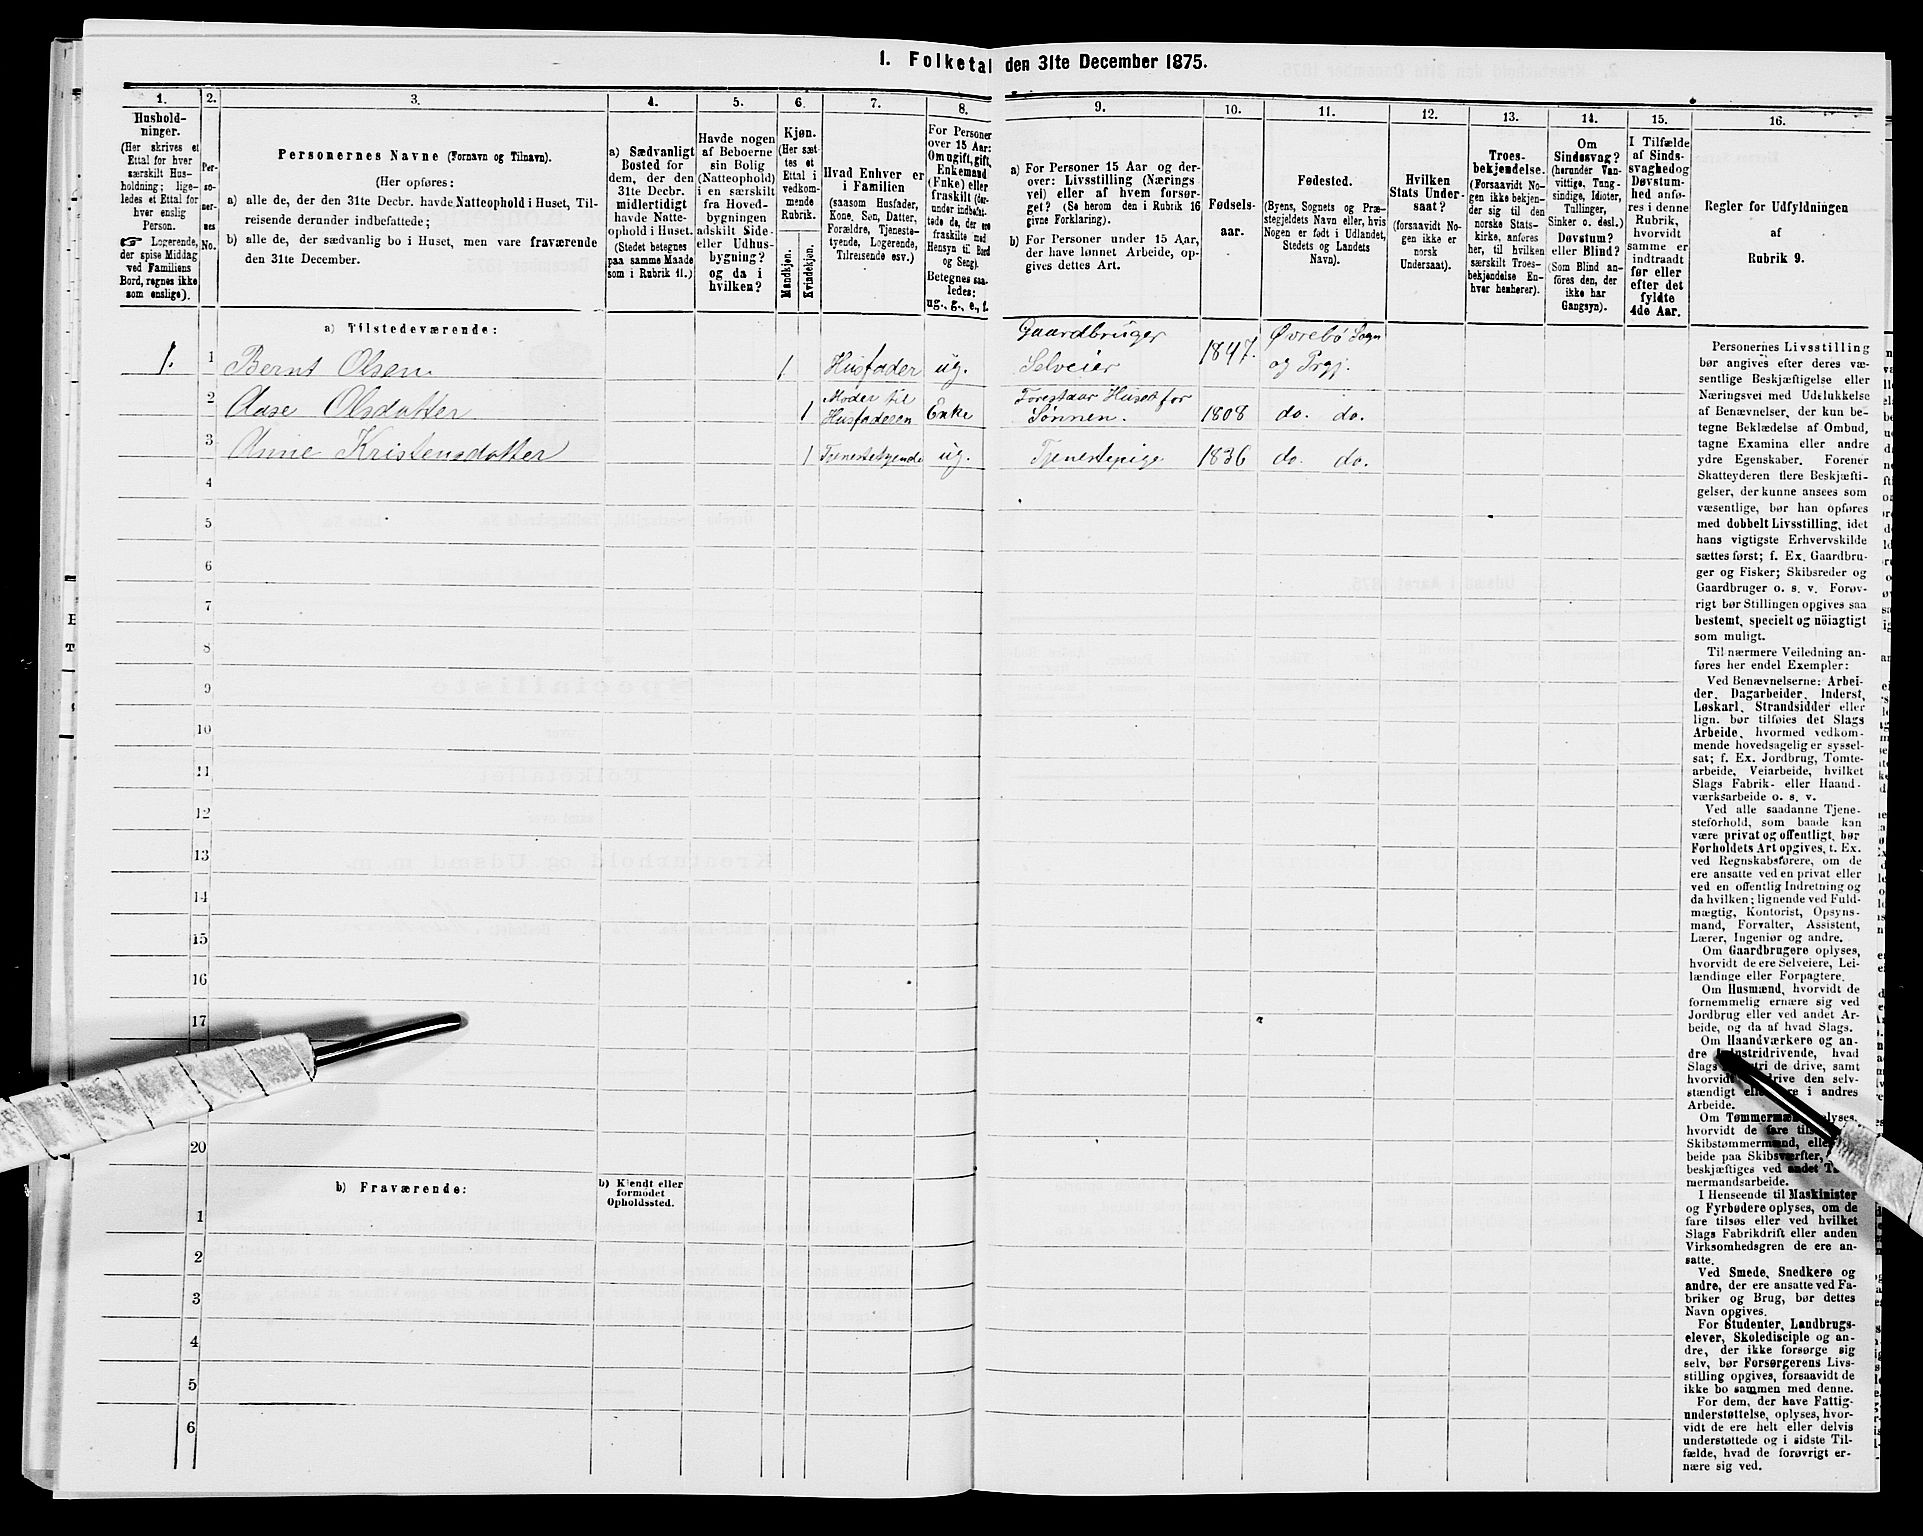 1. Folketal den 31te December 1875.
1.
2.
3.
4.
5.
6.
7.
8.
9.
10.
11.
12.
13.
14.
15.
16.
Hushold-
ninger.
(Her skrives et
Ettal for hver
særskilt Hus-
holdning; lige-
ledes et Ettal for
hver enslig
Person.
☞ Logerende,
der spise Middag
ved Familiens
Bord, regnes ikke
som enslige).
Per-
so-
ner-
nes
No.
Personernes Navne (Fornavn og Tilnavn).
(Her opføres:
a) alle de, der den 31te Decbr. havde Natteophold i Huset, Til-
reisende derunder indbefattede;
b) alle de, der sædvanlig bo i Huset, men vare fraværende
den 31te December.
a) Sædvanligt
Bosted for
dem, der den
31te Decbr.
midlertidigt
havde Natte-
ophold i Huset.
(Stedet betegnes
paa samme Maade
som i Rubrik 11.)
Havde nogen
af Beboerne
sin Bolig
(Natteophold)
i en særskilt
fra Hoved-
bygningen
adskilt Side-
eller Udhus-
bygning?
og da i
hvilken?
Kjøn.
(Her sæt-
tes et
Ettal i
vedkom-
mende
Rubrik.
Mandkjøn.
Kvindekjøn.
Hvad Enhver er
i Familien
(saasom Husfader,
Kone, Søn, Datter,
Forældre, Tjeneste-
tyende, Logerende,
Tilreisende osv.)
For Personer
over 15 Aar:
Om ugift, gift,
Enkemand
(Enke) eller
fraskilt (der-
under indbefat-
tede de, der ere
fraskilte med
Hensyn til Bord
og Seng).
Betegnes saa-
ledes:
ug., g., e., f.
a) For Personer 15 Aar og der-
over: Livsstilling (Nærings
vei) eller af hvem forsør-
get? (Se herom den i Rubrik 16
givne Forklaring).
b) For Personer under 15 Aar,
der have lønnet Arbeide, op-
gives dettes Art.
Fødsels-
aar.
Fødested.
(Byens, Sognets og Præ-
stegjeldets Navn eller, hvis
Nogen er født i Udlandet,
Stedets og Landets
Navn).
Hvilken
Stats Under-
saat?
(forsaavidt No-
gen ikke er
norsk
Undersaat).
Troes-
bekjendelse.
(Forsaavidt No-
gen ikke bekjen-
der sig til den
norske Stats-
kirke, anføres
her, til hvilken
særskilt Troes-
bekjendelse En-
hver henhører).
Om
Sindssvag?
(herunder Van-
vittige, Tung-
sindige, Idioter,
Tullinger,
Sinker o. desl.)
Døvstum?
eller Blind?
(Som Blind an-
føres den, der
ikke har
Gangsyn).
I Tilfælde
af Sinds-
svaghed og
Døvstum-
hed anfø-
res i denne
Rubrik,
hvorvidt
samme er
indtraadt
før eller
efter det
fyldte
4de Aar.
Regler for Udfyldningen
af
Rubrik 9.
a) Tilstedeværende:
1. 1 Bernt Olsen 1 Husfader ug. Gaardbruger
Selveier 1847. Øvrebö Sogn
og Prgj.
2 Aase Olsdatter 1 Moder til
Husfaderen Enke Forestaar Huset for
Sønnen. 1808 do. do.
3 Anne Kristensdatter 1 Tjenestetyende ug. Tjenestepige 1836 do. do.
4
5
6
7
8
9
10
11
12
13
14
15
16
17
20
b) Fraværende:
b) Kjendt eller
formodet
Opholdssted.
1
2
3
4
5
6
Personernes Livsstilling
bør angives efter deres væ-
sentlige Beskjæftigelse eller
Næringsvei med Udelukkelse
af Benævnelser, der kun be-
tegne Beklædelse af Ombud,
tagne Examina eller andre
ydre Egenskaber. Forener
Skatteyderen flere Beskjæfti-
gelser, der kunne ansees som
væsentlige, bør han opføres
med dobbelt Livsstilling, idet
hans vigtigste Erhvervskilde
sættes først; f. Ex. Gaardbru-
ger og Fisker; Skibsreder og
Gaardbruger o. s. v. Forøv-
rigt bør Stillingen opgives saa
bestemt, specielt og nöiagtigt
som muligt.
Til nærmere Veiledning an-
føres her endel Exempler:
Ved Benævnelserne: Arbei-
der, Dagarbeider, Inderst,
Løskarl, Strandsidder eller
lign. bør tilføies det Slags
Arbeide, hvormed vedkom-
mende hovedsagelig er syssel-
sat; f. Ex. Jordbrug, Tomte-
arbeide, Veiarbeide, hvilket
Slags Fabrik- eller Haand-
værksarbeide o. s. v.
Ved alle saadanne Tjene-
steforhold, som baade kan
være privat og offentligt, bør
Forholdets Art opgives, t. Ex.
ved Regnskabsførere, om de
ere ansatte ved en privat eller
ved en offentlig Indretning og
da hvilken; lignende ved Fuld-
mægtig, Kontorist, Opsyns-
mand, Forvalter, Assistent,
Lærer, Ingeniør og andre.
Om Gaardbrugere oplyses,
hvorvidt de ere Selveiere, Lei-
lændinge eller Forpagtere.
Om Husmænd, hvorvidt de
fornemmelig ernære sig ved
Jordbrug eller ved andet Ar-
beide, og da af hvad Slags.
Om Haandværkere og an-
dre Industridrivende, hvad
Slags de drive, samt
hvorvidt drive den selv-
stændigt i andres
Arbeide.
Om Tømmermænd oplyses,
hvorvidt de fare
Skibstømmermænd,
beide paa Skibsværfter,
beskjæftiges ved andet
mermandsarbeide.
I Henseende til Maskinister
og Fyrbødere oplyses, om de
fare tilsøs eller ved hvilket
Slags Fabrikdrift eller anden
Virksomhedsgren de ere an-
satte.
Ved Smede, Snedkere og
andre, der ere ansatte ved Fa-
briker og Brug, bør dettes
Navn opgives.
For Studenter, Landbrugs-
elever, Skoledisciple og an-
dre, der ikke forsørge sig
selv, bør Forsørgerens Livs-
stilling opgives, forsaavidt de
ikke bo sammen med denne.
For dem, der have Fattig-
understøttelse, oplyses, hvor-
vidt de ere helt eller delvis
understøttede og i sidste Til-
fælde, hvad de forøvrigt er-
nære sig ved.